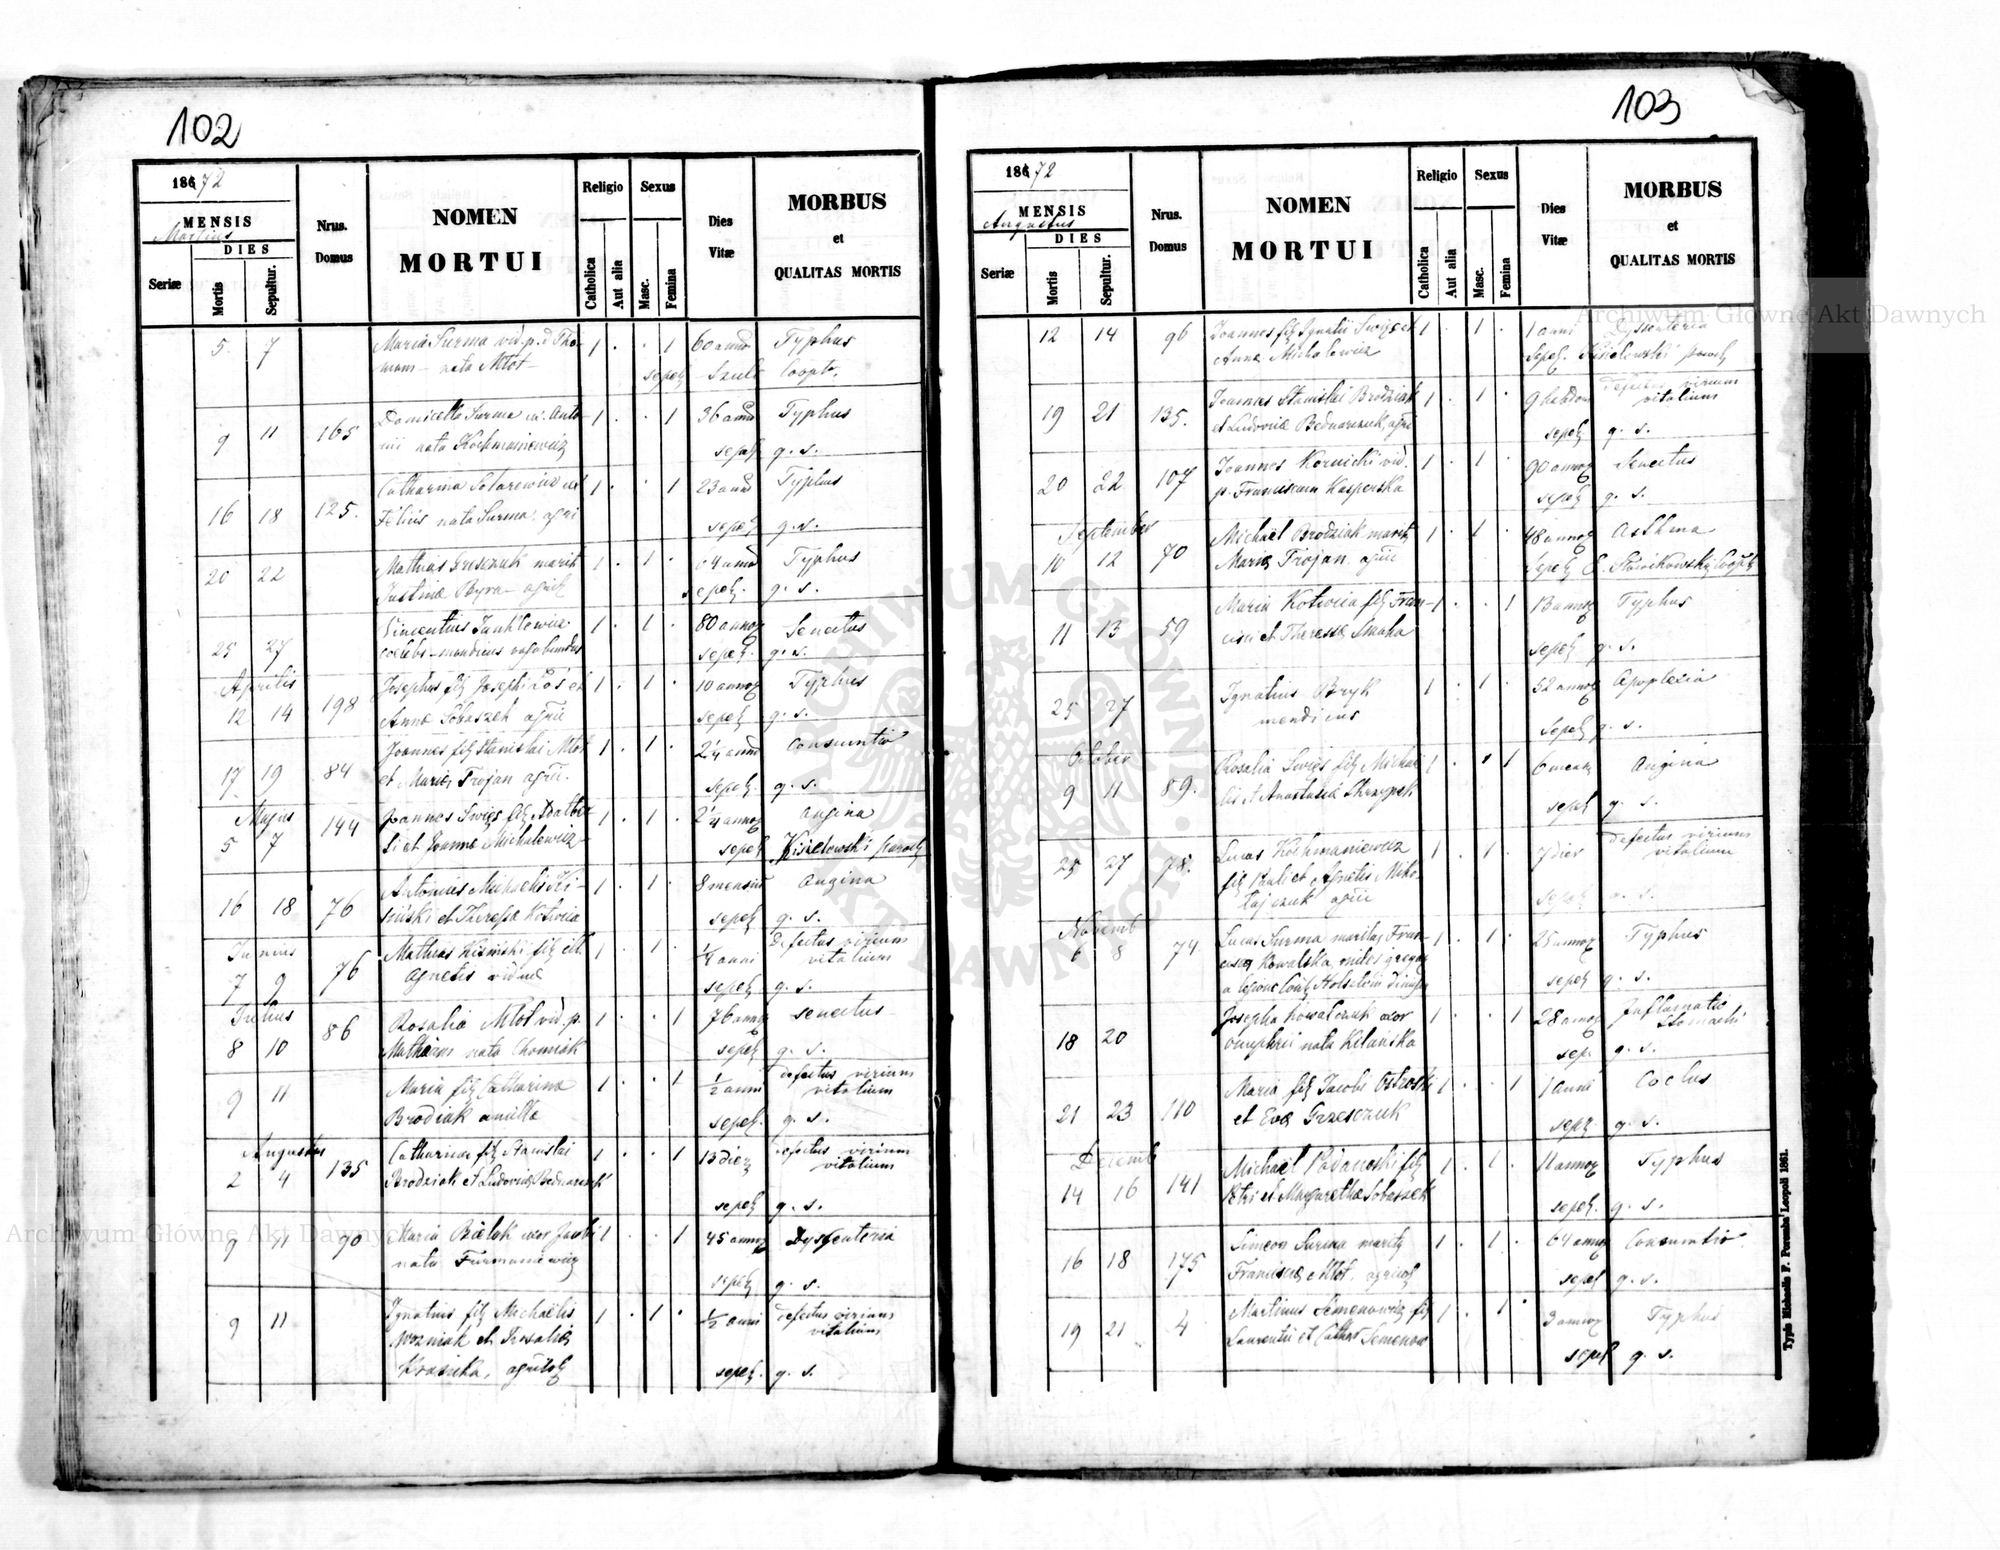 102
1872
MENSIS
Martius
DIES
Seriæ
Mortis
Sepultur.
Nrus. Domus
NOMEN
MORTUI
Religio
Catholica
Aut alia
Sexus
Masc.
Femina
Dies Vitæ
MORBUS
et
QUALITAS MORTIS
5 7 Maria Surma vid. p. d. Tho- 1 . . 1 60 annor Typhus
mam nata Młot sepel coopt.
9 11 165 Domicella Surma ux. Anto- 1 . . 1 36 annor Typhus
nii nata Kochmaniewicz sepel q. s.
16 18 125. Catharina Solarewicz 1 . . 1 23 annor Typhus
Felicis nata Surma agri sepel q. s.
20 22 Mathias Greszczuk marit 1 . 1 . 64 annor Typhus
Justinæ Byra agric sepel. q. s.
25 27 Vincentius 1 . 1 . 80 annor Senectus
coelebs mendicus vagabundus sepel. q. s.
Aprilis
12 14 198 Josephus fil Josephi Łoś et 1 . 1 . 10 annor Typhus
Annæ Sobaszek agric sepel q. s.
17 19 84 Joannes fil Stanislai Młot 1 . 1 . 2 1/4 annor Consumtio
et Mariæ Trojan agric. sepel. q. s.
Majus
5 7 144 Joannes Święs fil Adalber- 1 . 1 . 2 1/4 annor Angina
ti et Joannæ Michalewicz sepel Kisielewski paroch
16 18 76 Antonius Michaelis Ki- 1 . 1 . 8 mensium Angina
siński et Theresæ Kotwica sepel q. s.
Junius
7 9 76 Mathias Kisinski fil ill. 1 . 1 . 1/4 anni defectus virium vitalium
Agnetis viduæ sepel q. s.
Julius
8 10 86 Rosalia Młot vid. p. 1 . . 1 76 annor senectus
Mathæum nata Chomiak sepel q. s.
9 11 Maria fil Catharinæ 1 . . 1 1/2 anni defectus virium vitalium
Brodziak ancillæ sepel. q. s.
Augustus
2 4 135 Catharina fil Stanislai 1 . . 1 13 dier defectus virium vitalium
Brodziak et Ludovicæ Bednarczuk sepel q. s.
9 11 90 Maria Bielak uxor Jacobi 1 . . 1 45 annor Dyssenteria
nata Furmaniewicz sepel q. s.
9 11 Ignatius fil Michaelis 1 . 1 . 1/2 anni defectus virium vitalium
Wozniak et Rosaliæ
Krasicka, agricol sepel. q. s.
103
1872
MENSIS
Augustus
DIES
Seriæ
Mortis
Sepultur.
Nrus. Domus
NOMEN
MORTUI
Religio
Catholica
Aut alia
Sexus
Masc.
Femina
Dies Vitæ
MORBUS
et
QUALITAS MORTIS
12 14 96 Joannes fil Ignatii 1 . 1 . 1 anni Dyssenteria
Anna Michalewicz sepel. Kisielewski paroch
19 21 135. Joannes Stanislai Brodziak 1 . 1 . 9 hebdom defectus virium vitalium
et Ludovicæ Bednarczuk, agric sepel q. s.
20 22 107 Joannes Kornicki vid. 1 . 1 . 90 annor Senectus
p. Franciscam Kasperska sepel q. s.
September
10 12 70 Michaël Brodziak marit 1 . 1 . 48 annor Asthma
Mariæ Trojan agric sepel S. Słowikowski, Coopt
11 13 59 Maria Kotwica fil Fran- 1 . . 1 13 annor Typhus
cisci et Theresæ Smaha sepel q. s.
25 27 Ignatius Bryk 1 . 1 . 52 annor Apoplexia
mendicus sepel q. s.
October
9 11 89. Rosalia Święs fil Michae- 1 . . 1 6 mens Angina
lis et Anastasiæ Skrzypek sepel q. s.
25 27 78. Lucas Kochmaniewicz 1 . 1 . 7 dier defectus virium vitalium
fil Pauli et Agnetis Miko-
łajczuk agric sepel q. s.
Novemb
6 8 74 Lucas Surma maritus Fran- 1 . 1 . 25 annor Typhus
ciscæ Kowalska, miles gregar sepel q. s.
18 20 Josepha Kowalczuk uxor 1 . . 1 28 annor Inflamatio Stomachi
Onuphrii nata Kilańska sep. q. s.
21 23 110 Maria fil Jacobi Ostroski 1 . . 1 1 anni
et Evæ Grzesczuk sepel. q. s.
Decemb
14 16 141 Michaël Padanoski fil 1 . 1 . 11 annor Typhus
Petri et Margarethæ Sobaszek sepel. q. s.
16 18 175 Simeon Surma marit 1 . 1 . 64 annor Consumtio
Franciscæ Młot, agricol sepel q. s.
19 21 4 Martinus Semenowicz fil 1 . 1 . 3 annor Typhus
Laurentii et Cathar Semenow sepel q. s.
Typis Michaelis F. Poremba Leopoli 1861.
Archiwum Główne Akt Dawnych
Archiwum Główne Akt Dawnych
ARCHIWUM GŁÓWNE AKT DAWNYCH